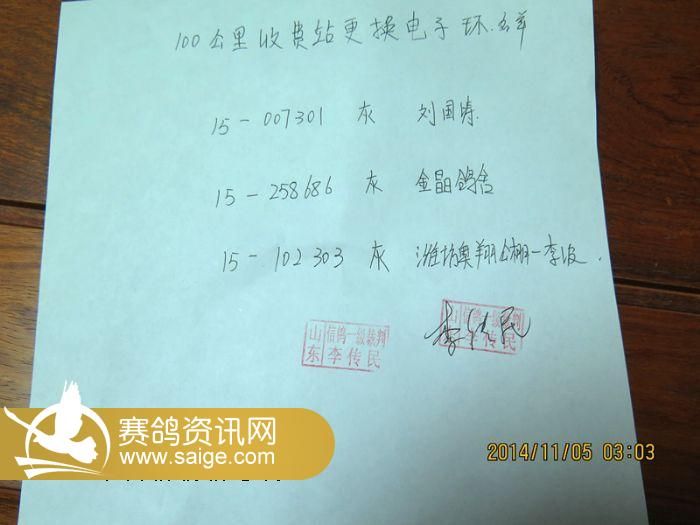 100公里收费站更换电子环.名单
15-007301 灰 刘国涛
15-258686 灰 金晶鸽舍
15-102303 灰 潍坊奥翔公棚-李波.
山东 信鸽一级裁判 李传民
山东 信鸽一级裁判 李传民
李传民
赛鸽资讯网
www.saige.com
2014/11/05 03:03